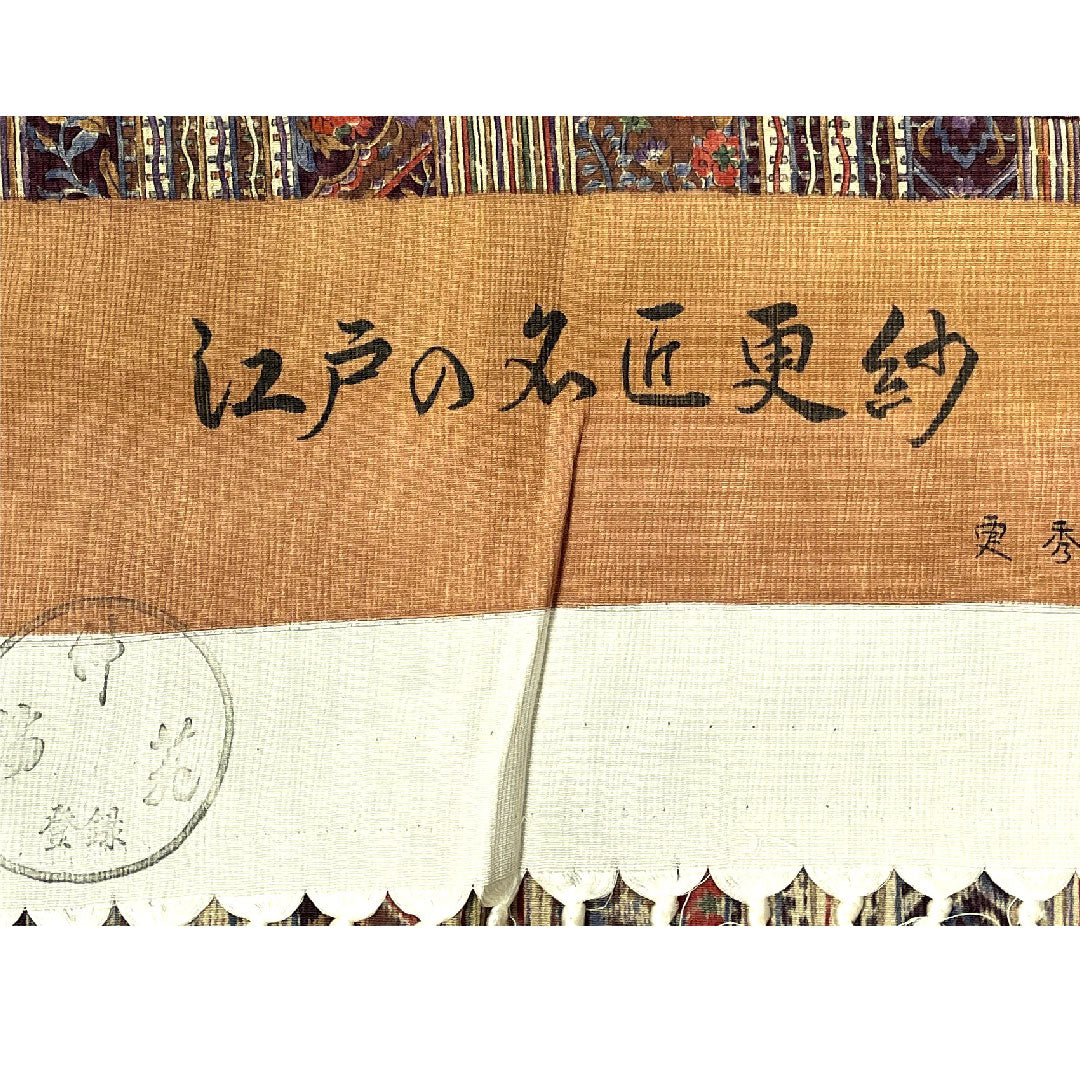 江戸の名匠更紗
更秀
登録